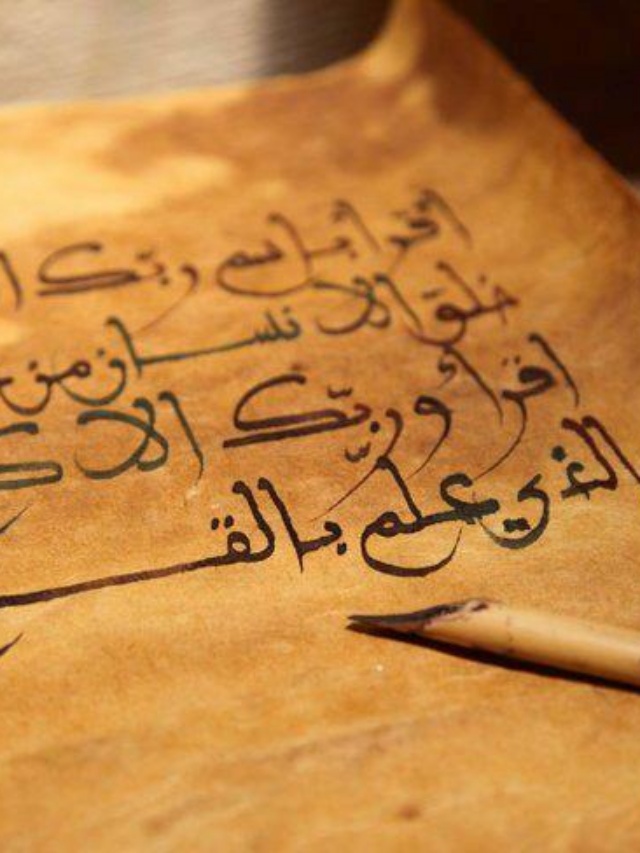 اقرأ باسم ربّك
خلق الانسان من
اقرأ وربّك الا
الذي علّم بالقـ